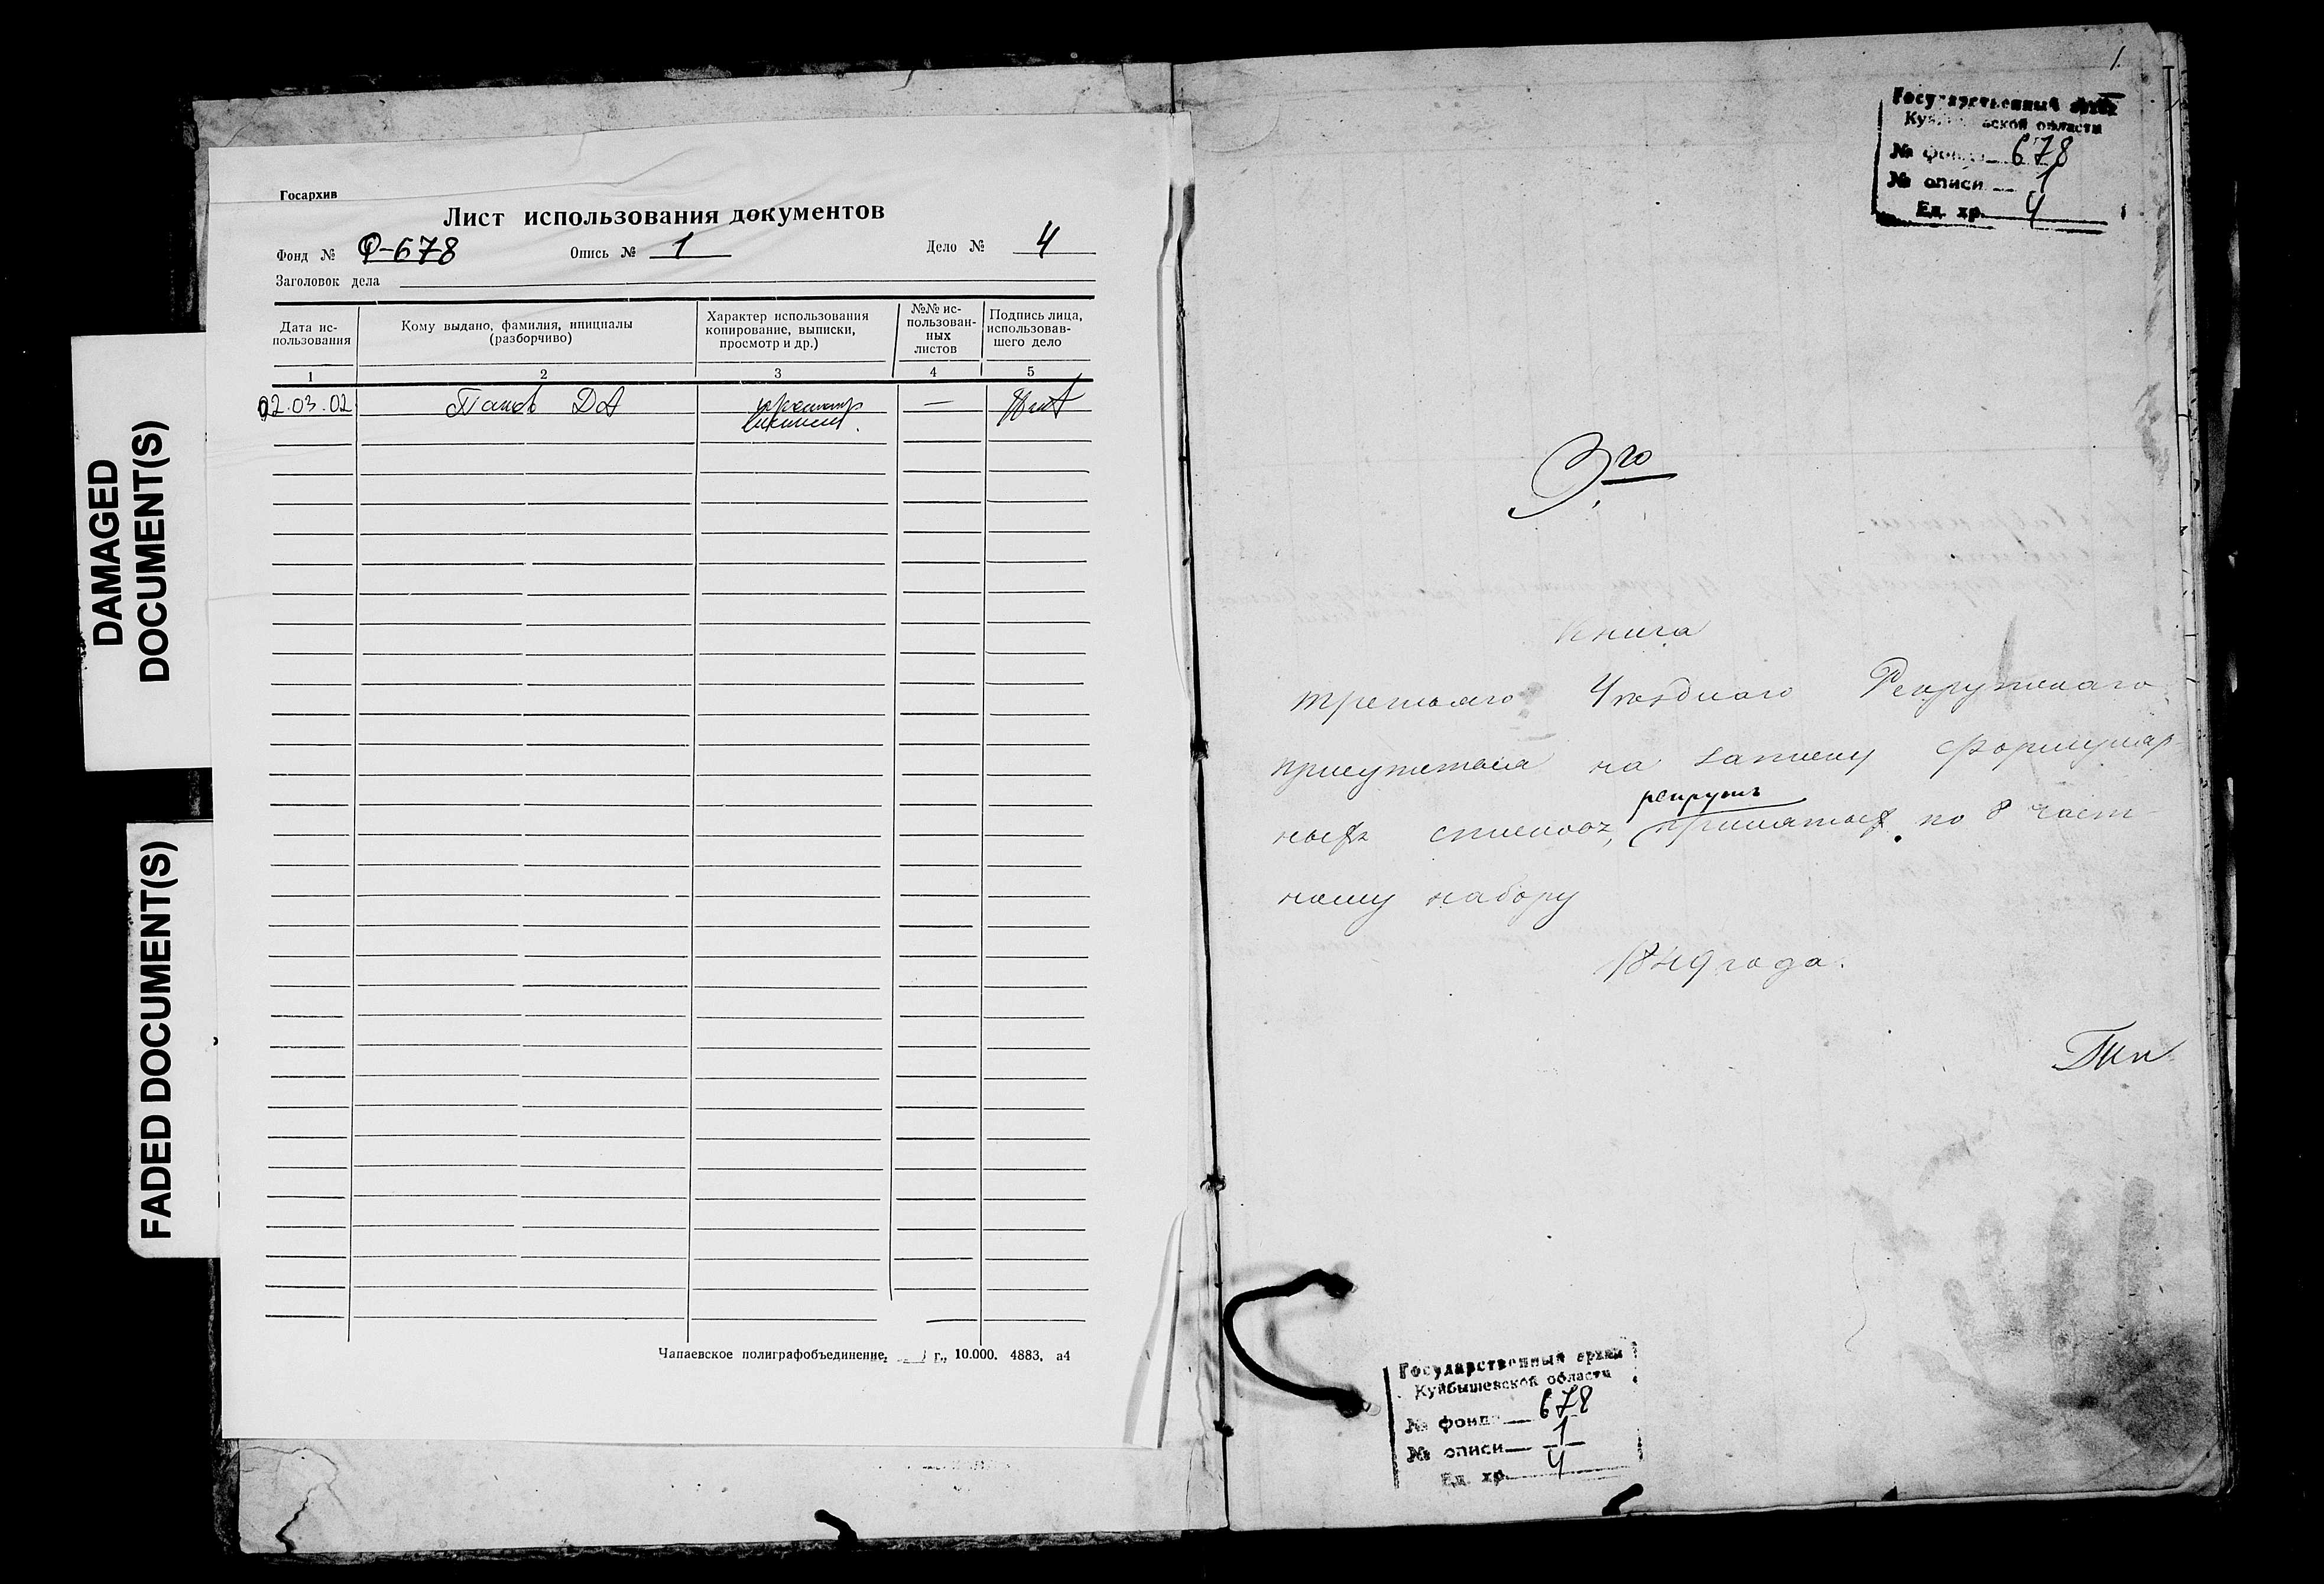 DAMAGED
DOCUMENT(S)
FADED DOCUMENT(S)
Госархив
Лист использования документов
Фонд № Ф-678 Опись № 1 Дело № 4
Заголовок дела
Дата ис-
пользования
Кому выдано, фамилия, инициалы
(разборчиво)
Характер использования
копирование, выписки,
просмотр и др.)
№№ ис-
пользован-
ных
листов
Подпись лица,
использовав-
шего дело
1 2 3 4 5
02.03.02 ДА просмотр —
Чапаевское полиграфобъединение, г., 10.000. 4883, а4
1.
Государственный архив
Куйбышевской области
№ фонда 678
№ описи 1
Ед. хр. 4
3го
Книга
третьяго Уезднаго Рекрутскаго
присутствия на записку формуляр-
ныхъ списковъ, рекрутъ принятых по 8 част
ному набору
1849 года.
Государственный архив
Куйбышевской области
№ фонда 678
№ описи 1
Ед. хр. 4